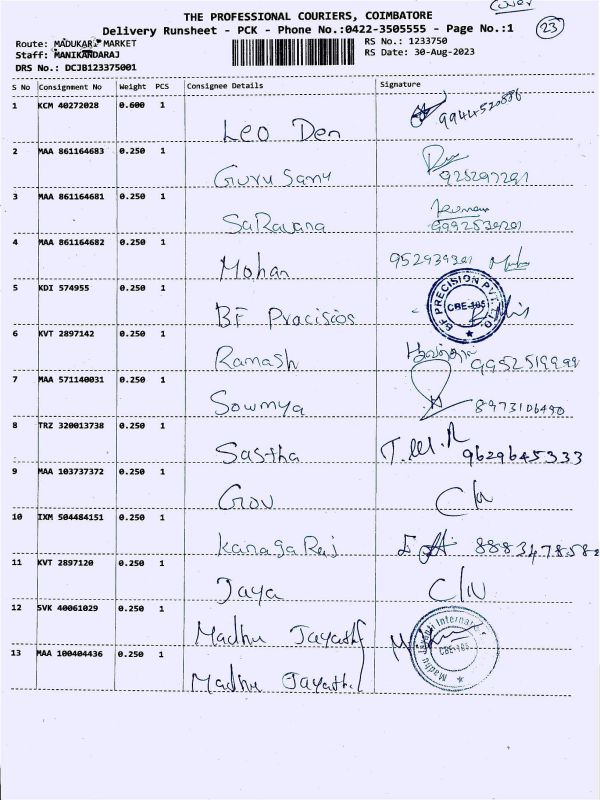 Cover
THE PROFESSIONAL COURIERS, COIMBATORE
23
Delivery Runsheet - PCK - Phone No.:0422-3505555 - Page No.:1
Route: MADUKARI MARKET
RS No.: 1233750
Staff: MANIKANDARAJ
RS Date: 30-Aug-2023
DRS No.: DCJB123375001
S No Consignment No Weight PCS Consignee Details Signature
1 KCM 40272028 0.600 1
Leo Den
2 MAA 861164683 0.250 1
Guru Samy
3 MAA 861164681 0.250 1
SaRavana
4 MAA 861164682 0.250 1
Mohan
5 KDI 574955 0.250 1
BF Pracisios BF PRECISION PVT. LTD. CBE-105
6 KVT 2897142 0.250 1
Ramash
7 MAA 571140031 0.250 1
Sowmya 8973106490
8 TRZ 320013738 0.250 1
Sastha T.M.R 9629645333
9 MAA 103737372 0.250 1
Gov
10 IXM 504484151 0.250 1
Kanaga Raj
11 KVT 2897120 0.250 1
Jaya
12 SVK 40061029 0.250 1
Madhu Jayashf Madhu Jayanti Internat CBE-105
13 MAA 100404436 0.250 1
Madhu Jayathi